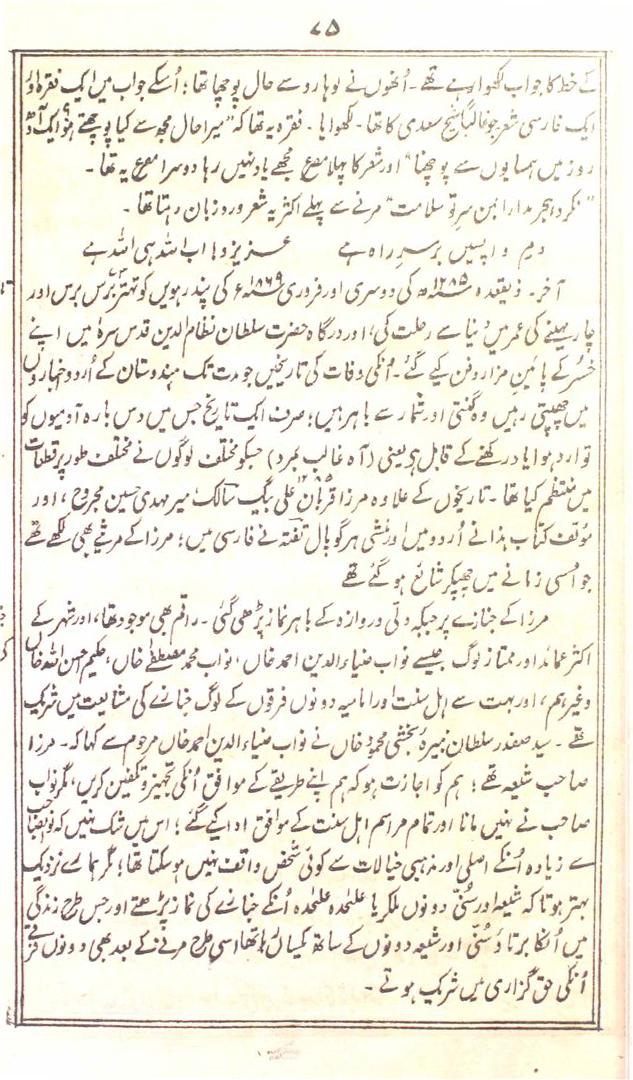 ۷۵
کے خط کا جواب لکھوا رہے تھے۔ اُنھوں نے لوہارو سے حال پوچھا تھا؛ اُسکے جواب میں ایک فقرہ اور
ایک فارسی شعر جو غالباً شیخ سعدی کا تھا۔ لکھوایا۔ فقرہ یہ تھا کہ "میرا حال مجھ سے کیا پوچھتے ہو ایک آدھ
روز میں ہمسایوں سے پوچھنا" اور شعر کا پہلا مصرع مجھے یاد نہیں رہا دوسرا مصرع یہ تھا۔
"نکرد ہجر مدارا بمن سرِ تو سلامت" مرنے سے پہلے اکثر یہ شعر ورد زبان رہتا تھا۔
دمِ واپسیں برسرِ راہ ہے عزیزو اب اللہ ہی اللہ ہے
آخر۔ ذیقعدہ ۱۲۸۵ھ کی دوسری اور فروری ۱۸۶۹ء کی پندرہویں کو تہتر برس اور
چار مہینے کی عمر میں دنیا سے رحلت کی؛ اور درگاہ حضرت سلطان نظام الدین قدس سرہ میں اپنے
خسر کے پائینِ مزار دفن کیے گئے۔ اُنکی وفات کی تاریخیں جو مدت تک ہندوستان کے اُردو اخباروں
میں چھپتی رہیں وہ گنتی اور شمار سے باہر ہیں؛ صرف ایک تاریخ جس میں دس بارہ آدمیوں کو
توارد ہوا یاد رکھنے کے قابل ہی یعنی (آہ غالب بمرد) جسکو مختلف لوگوں نے مختلف طور پر قطعات
میں منتظم کیا تھا۔ تاریخوں کے علاوہ مرزا قربان علی بیگ سالک میر مہدی حسین مجروح، اور
مؤلف کتاب ہذا نے اُردو میں اور منشی ہرگوپال تفتہ نے فارسی میں؛ مرزا کے مرثیے بھی لکھے تھے
جو اُسی زمانے میں چھپکر شائع ہو گئے تھے
مرزا کے جنازے پر جبکہ دلی دروازہ کے باہر نماز پڑھی گئی۔ راقم بھی موجود تھا، اور شہر کے
اکثر عمائد اور ممتاز لوگ جیسے نواب ضیاء الدین احمد خاں، نواب محمد مصطفےٰ خاں، حکیم احسن اللہ خاں
وغیرہم، اور بہت سے اہل سنت اور امامیہ دونوں فرقوں کے لوگ جنازے کی مشایعت میں شریک
تھے۔ سید صفدر سلطان نبیرہ بخشی محمود خاں نے نواب ضیاء الدین احمد خاں مرحوم سے کہا کہ۔ مرزا
صاحب شیعہ تھے؛ ہم کو اجازت ہو کہ ہم اپنے طریقے کے موافق اُنکی تجہیز و تکفین کریں، مگر نواب
صاحب نے نہیں مانا اور تمام مراسم اہل سنت کے موافق ادا کیے گئے؛ اس میں شک نہیں کہ نواب صاحب
سے زیادہ اُنکے اصلی اور مذہبی خیالات سے کوئی شخص واقف نہیں ہو سکتا تھا؛ مگر ہمارے نزدیک
بہتر ہوتا کہ شیعہ اور سُنّی دونوں ملکر یا علیٰحدہ علیٰحدہ اُنکے جنازے کی نماز پڑھتے اور جس طرح زندگی
میں اُنکا برتاؤ سُنّی اور شیعہ دونوں کے ساتھ یکساں رہا تھا اسی طرح مرنے کے بعد بھی دونوں فرقے
اُنکی حق گزاری میں شریک ہوتے۔